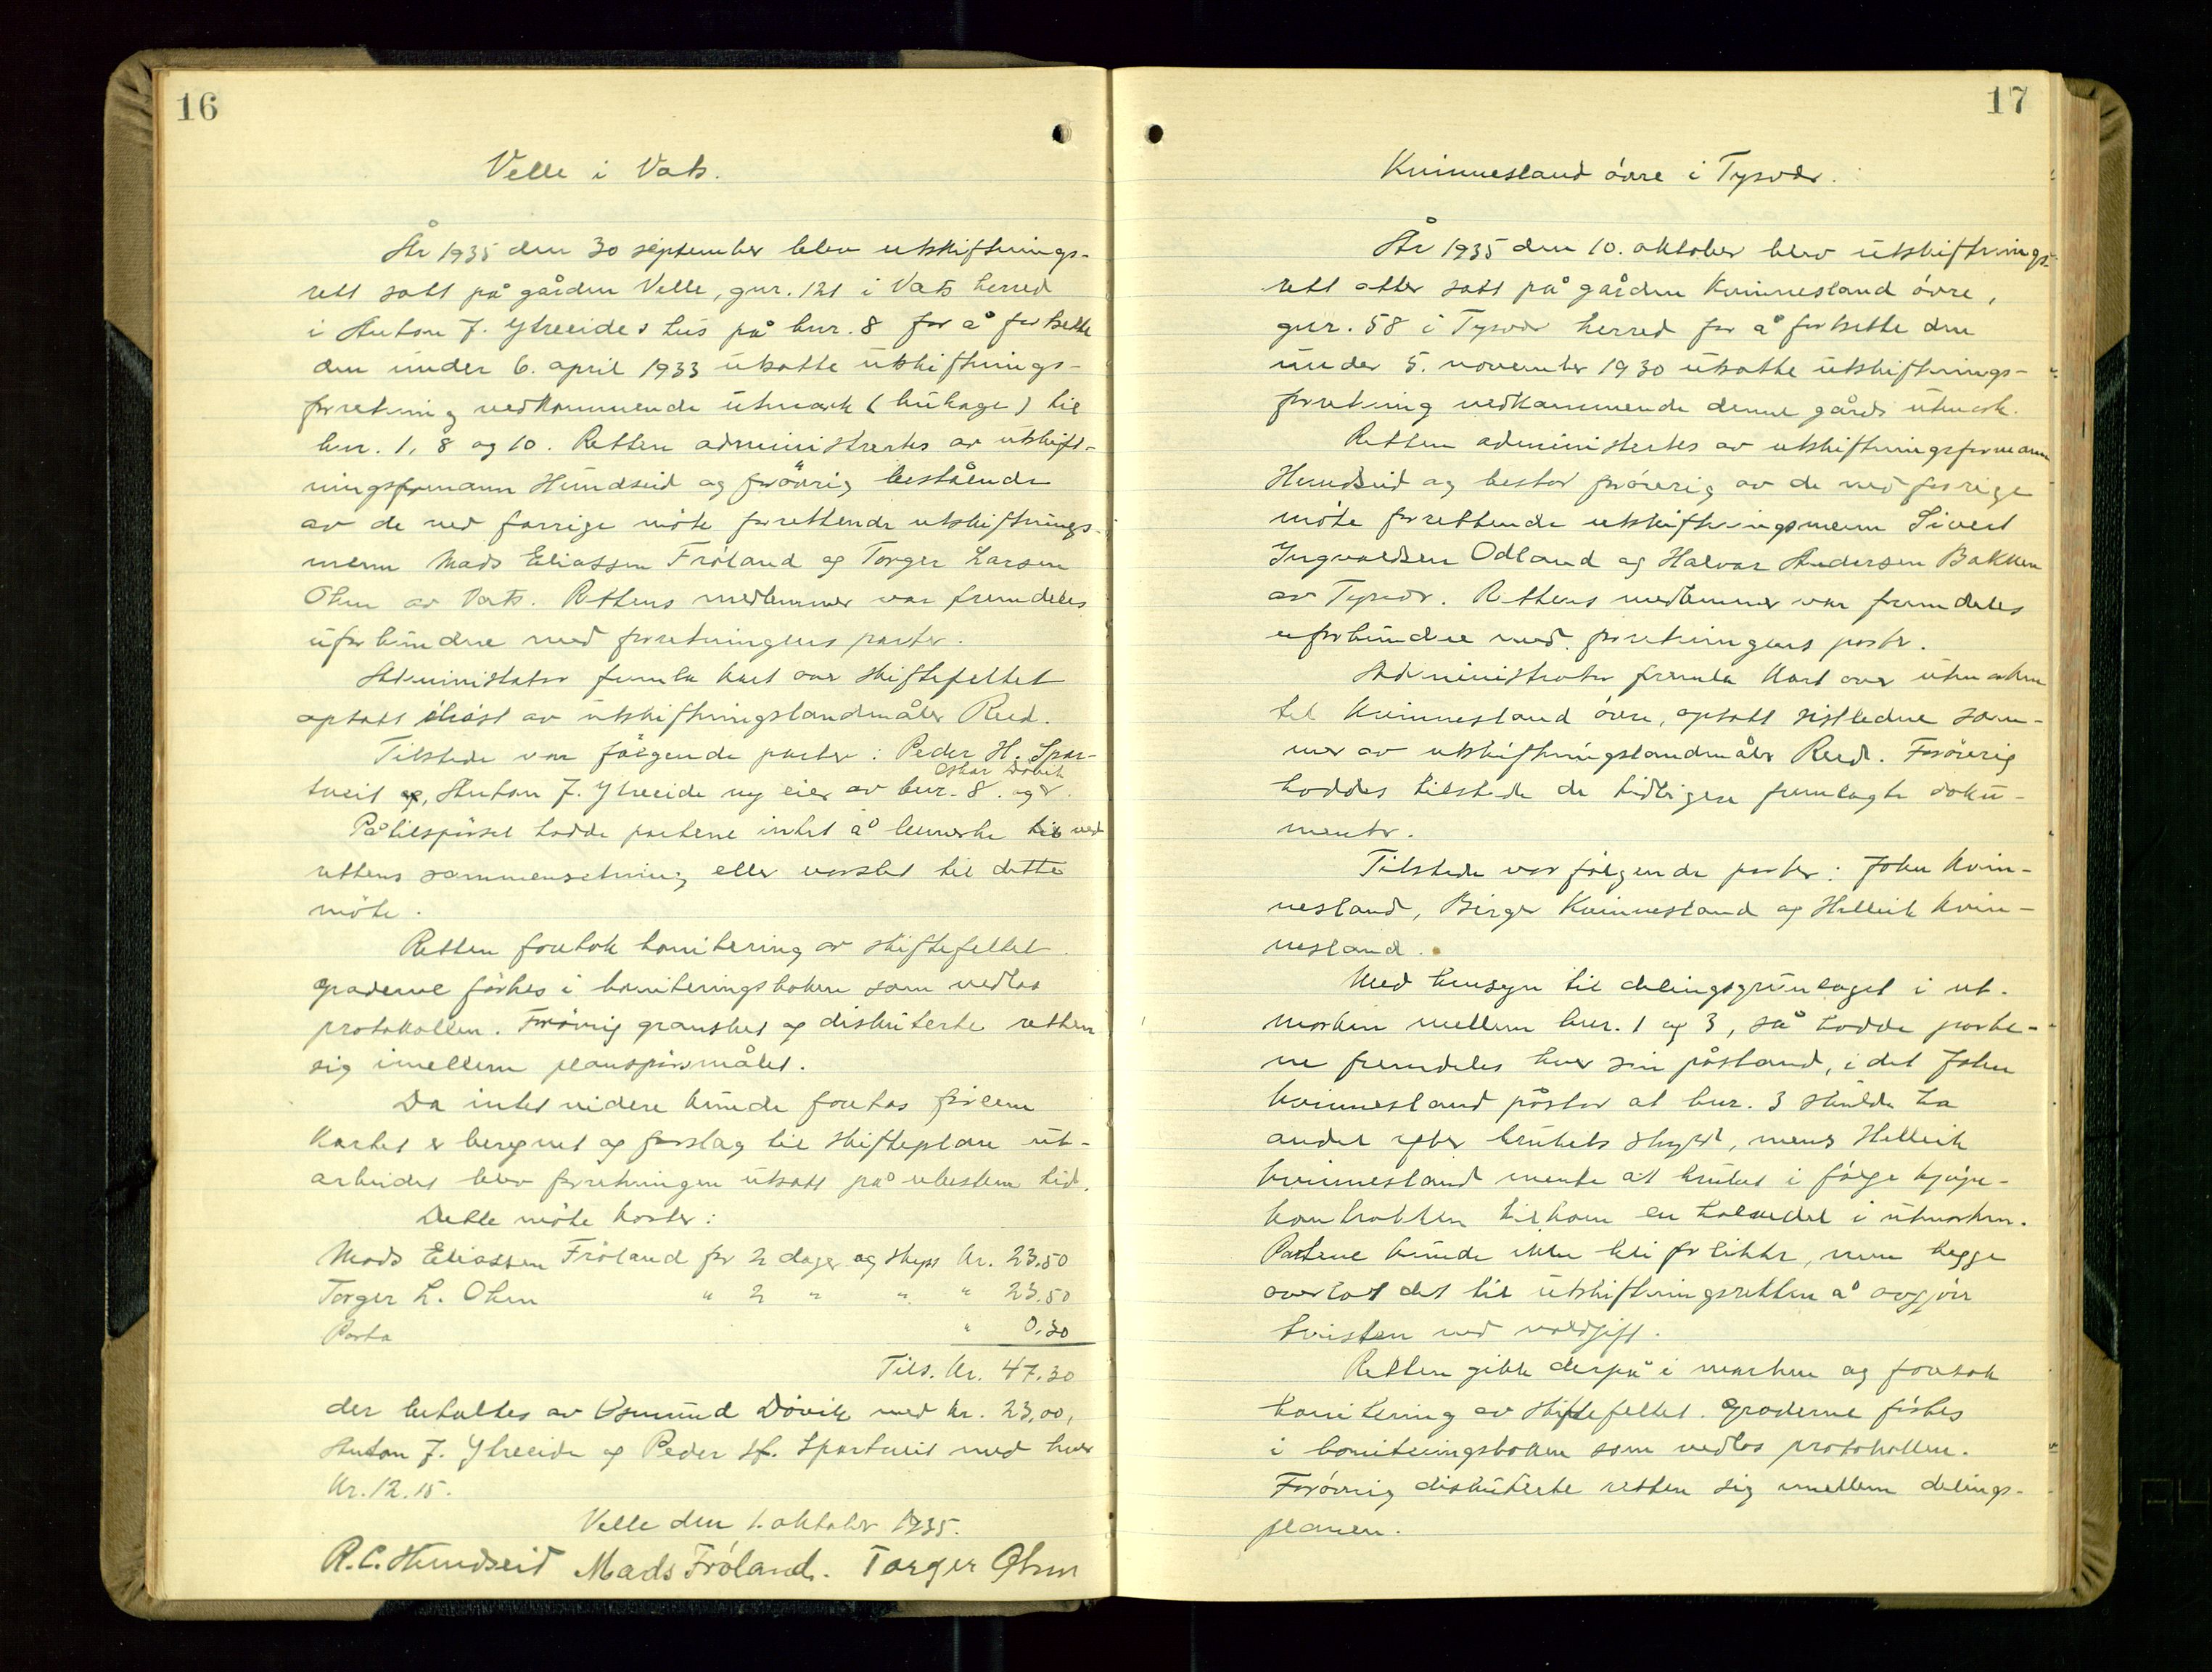 16
Velle i Vats.
År 1935 den 30 september blev utskiftnings-
rett satt på gården Velle, gnr. 121 i Vats herred
i Anton J. Ytreeides hus på bnr. 8 for å fortsette
den under 6. april 1933 utsatte utskiftnings-
forretning vedkommende utmark (buhage) til
bnr. 1, 8 og 10. Retten administrertes av utskift-
ningsformann Hundseid og forøvrig bestående
av de ved forrige møte forrettende utskiftnings-
menn Mads Eliassen Frøland og Torger Larsen
Ohm av Vats. Rettens medlemmer var fremdeles
uforbundne med forretningens parter.
Administrator fremla kart over skiftefeltet
optatt ihøst av utskiftningslandmåler Reed.
Tilstede var følgende parter: Peder H. Spar-
tveit og, Anton J. Ytreeide ny eier av bnr. 8. og Oskar Døvik.
På tilspørsel hadde partene intet å bemerke til ved
rettens sammensetning eller varslet til dette
møte.
Retten foretok bonitering av skiftefeltet.
Graderne førtes i boniteringsboken som vedlas
protokollen. Forøvrig gransket og diskuterte retten
sig imellem planspørsmålet.
Da intet videre kunde foretas førenn
kartet er beregnet og forslag til skifteplan ut-
arbeidet blev forretningen utsatt på ubestemt tid.
Dette møte koster:
Mads Eliassen Frøland for 2 dager og skyss kr. 23.50
Torger L. Ohm " 2 " " " 23.50
Porto " 0.30
Tils. kr. 47.30
der betaltes av Osmund Døvik med kr. 23,00,
Anton J. Ytreeide og Peder H. Spartveit med hver
kr. 12.15.
Velle den 1. oktober 1935.
R.C. Hundseid Mads Frøland. Torger Ohm
17
Kvinnesland øvre i Tysvær.
År 1935 den 10. oktober blev utskiftnings-
rett atter satt på gården Kvinnesland øvre,
gnr. 58 i Tysvær herred for å fortsette den
under 5. november 1930 utsatte utskiftnings-
forretning vedkommende denne gårds utmark.
Retten administertes av utskiftningsformann
Hundseid og bestod forøvrig av de ved forrige
møte forrettende utskiftningsmenn Sivert
Ingvaldsen Odland og Halvor Andersen Bakken
av Tysvær. Rettens medlemmer var fremdeles
uforbundne med forretningens parter.
Administrator fremla kart over utmarken
til Kvinnesland øvre, optatt sistledne som-
mer av utskiftningslandmåler Reed. Forøvrig
haddes tilstede de tidligere fremlagte doku-
menter.
Tilstede var følgende parter: John Kvin-
nesland, Birger Kvinnesland og Helleik Kvin-
nesland.
Med hensyn til delingsgrunlaget i ut-
marken mellem bnr. 1 og 3, så hadde parte-
ne fremdeles hver sin påstand, i det John
Kvinnesland påstod at bnr. 3 skulde ha
andel efter brukets skyld, mens Helleik
Kvinnesland mente at bruket i følge kjøpe-
kontrakten tilkom en halvedel i utmarken.
Partene kunde ikke bli forlikte, men begge
overlot det til utskiftningsretten å avgjøre
tvisten ved voldgift.
Retten gikk derpå i marken og foretok
bonitering av skiftefeltet. Graderne førtes
i boniteringsboken som vedlas protokollen.
Forøvrig diskuterte retten sig imellem delings-
planen.